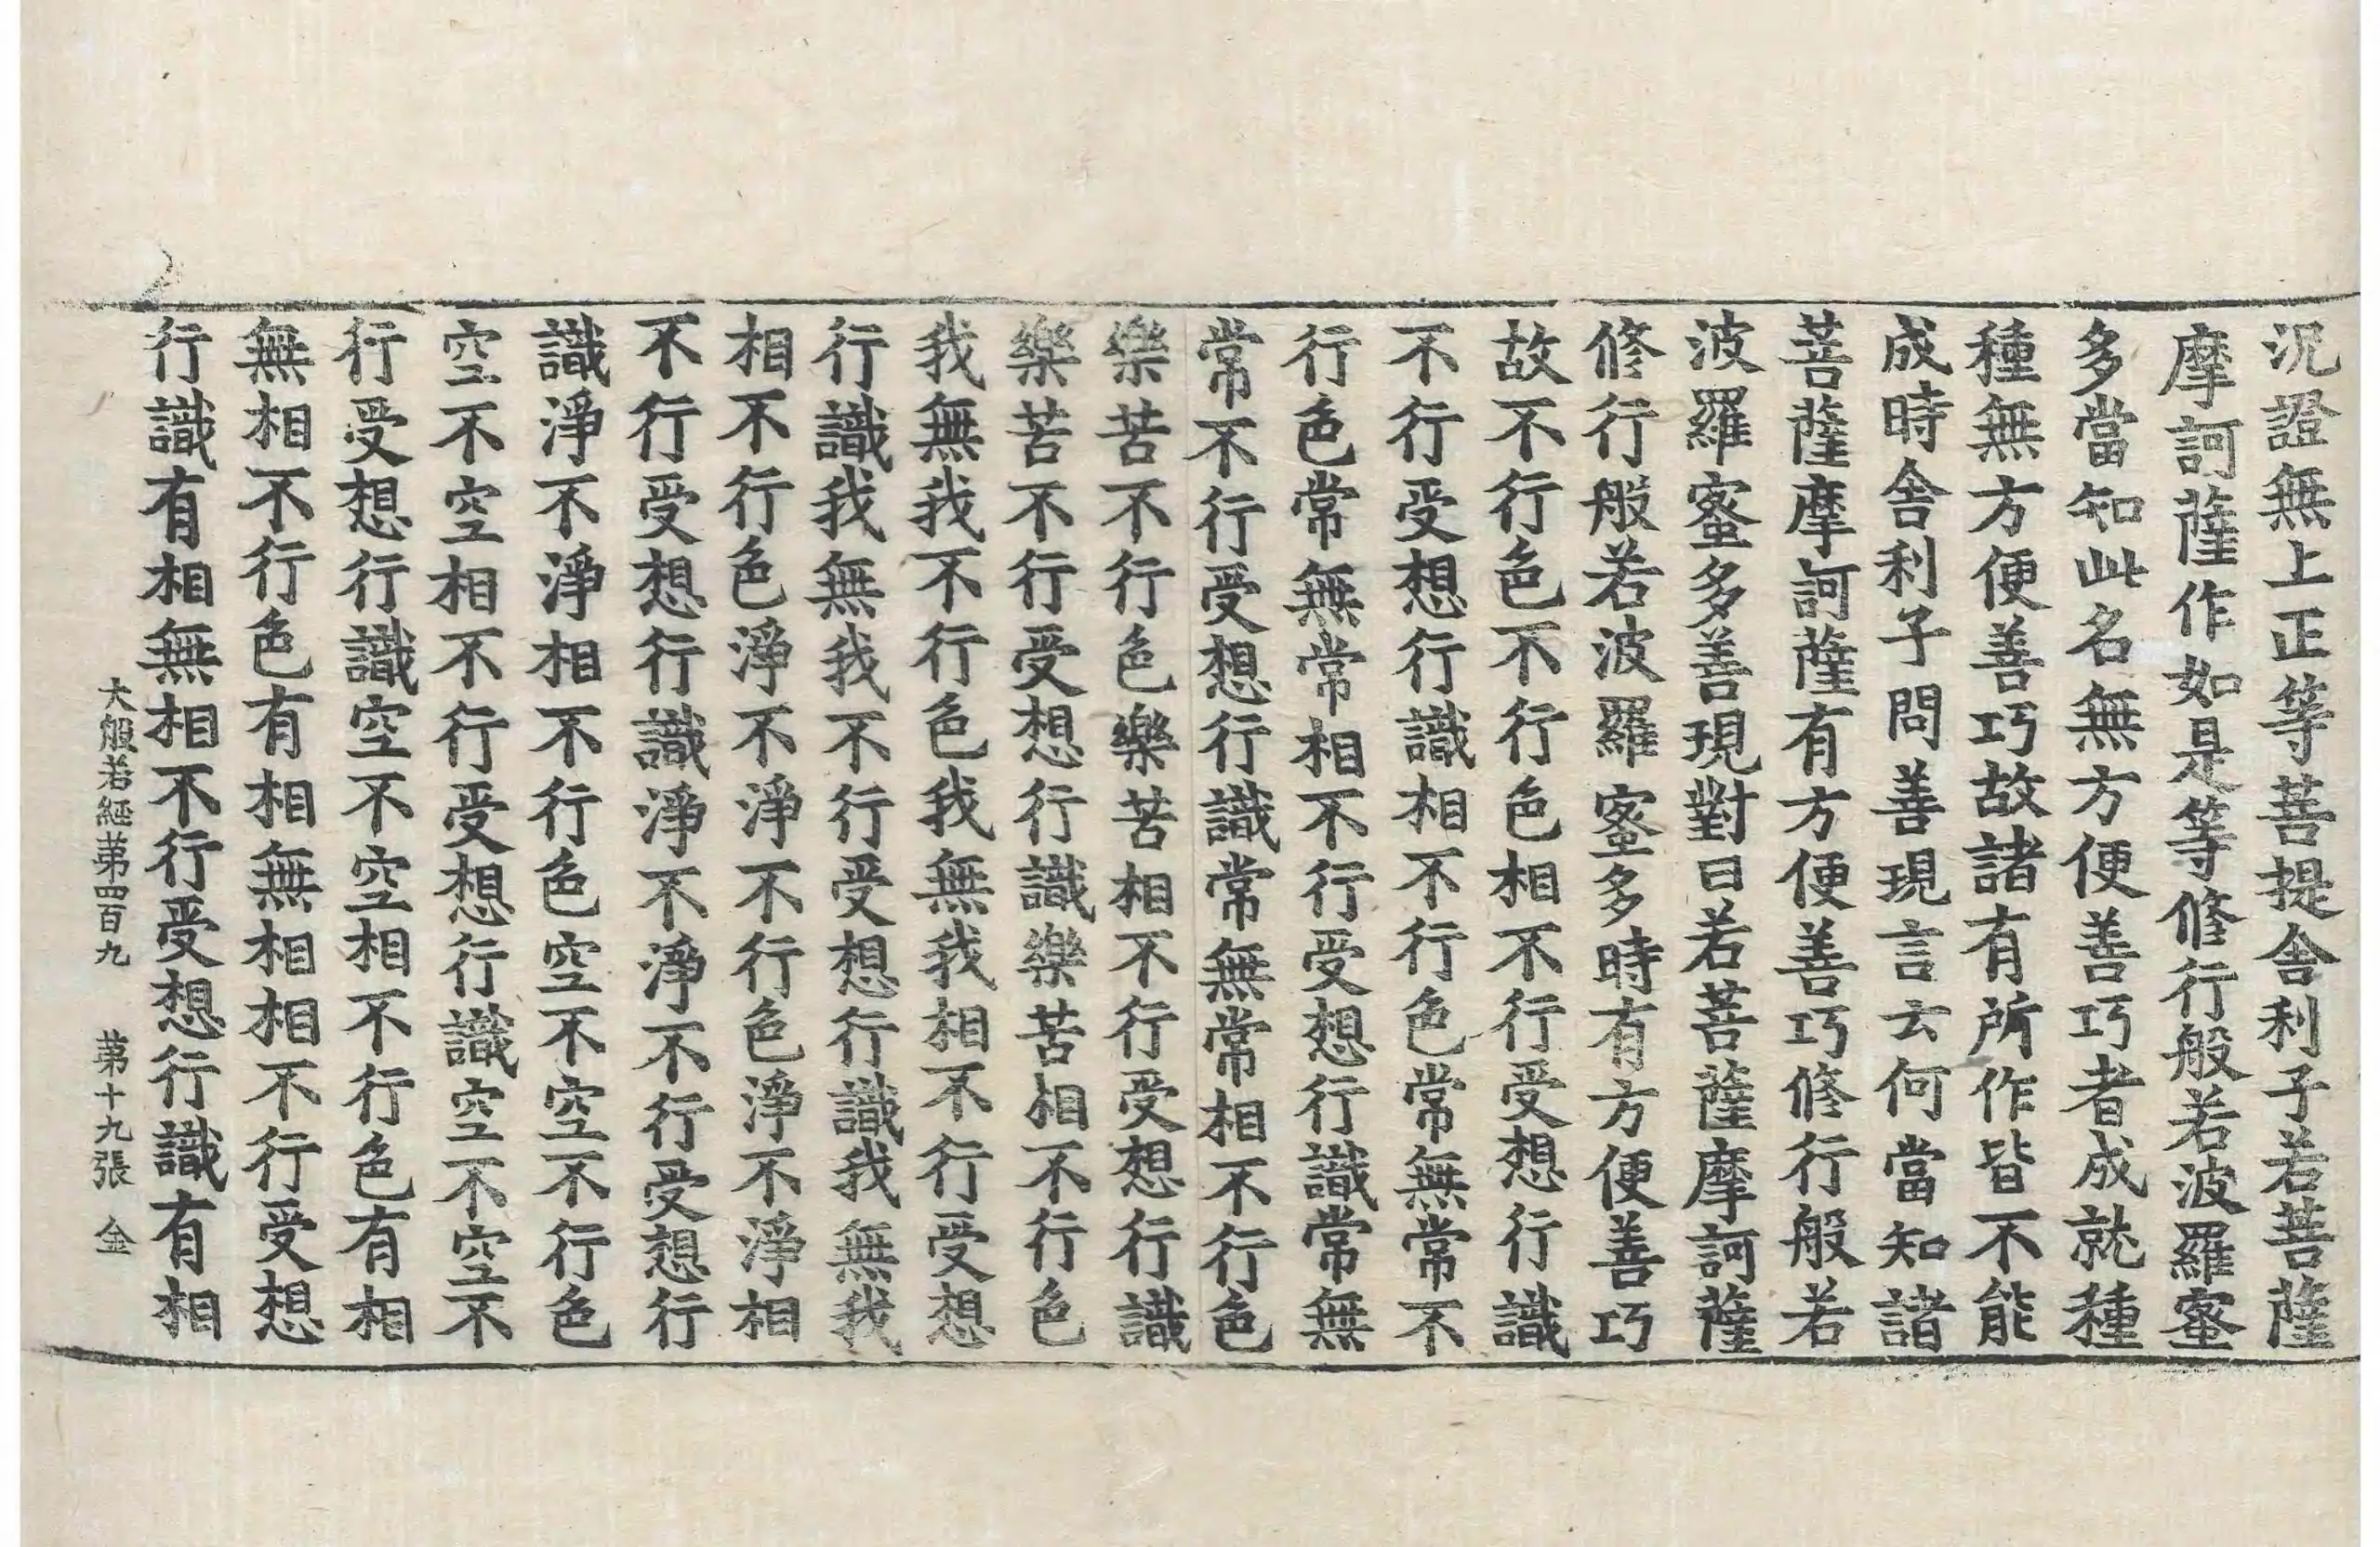 況證無上正等菩提舍利子若菩薩
摩訶薩作如是等修行般若波羅蜜
多當知此名無方便善巧者成就種
種無方便善巧故諸有所作皆不能
成時舍利子問善現言云何當知諸
菩薩摩訶薩有方便善巧修行般若
波羅蜜多善現對曰若菩薩摩訶薩
修行般若波羅蜜多時有方便善巧
故不行色不行色相不行受想行識
不行受想行識相不行色常無常不
行色常無常相不行受想行識常無
常不行受想行識常無常相不行色
樂苦不行色樂苦相不行受想行識
樂苦不行受想行識樂苦相不行色
我無我不行色我無我相不行受想
行識我無我不行受想行識我無我
相不行色淨不淨不行色淨不淨相
不行受想行識淨不淨不行受想行
識淨不淨相不行色空不空不行色
空不空相不行受想行識空不空不
行受想行識空不空相不行色有相
無相不行色有相無相相不行受想
行識有相無相不行受想行識有相
大般若經苐四百九 苐十九張 金